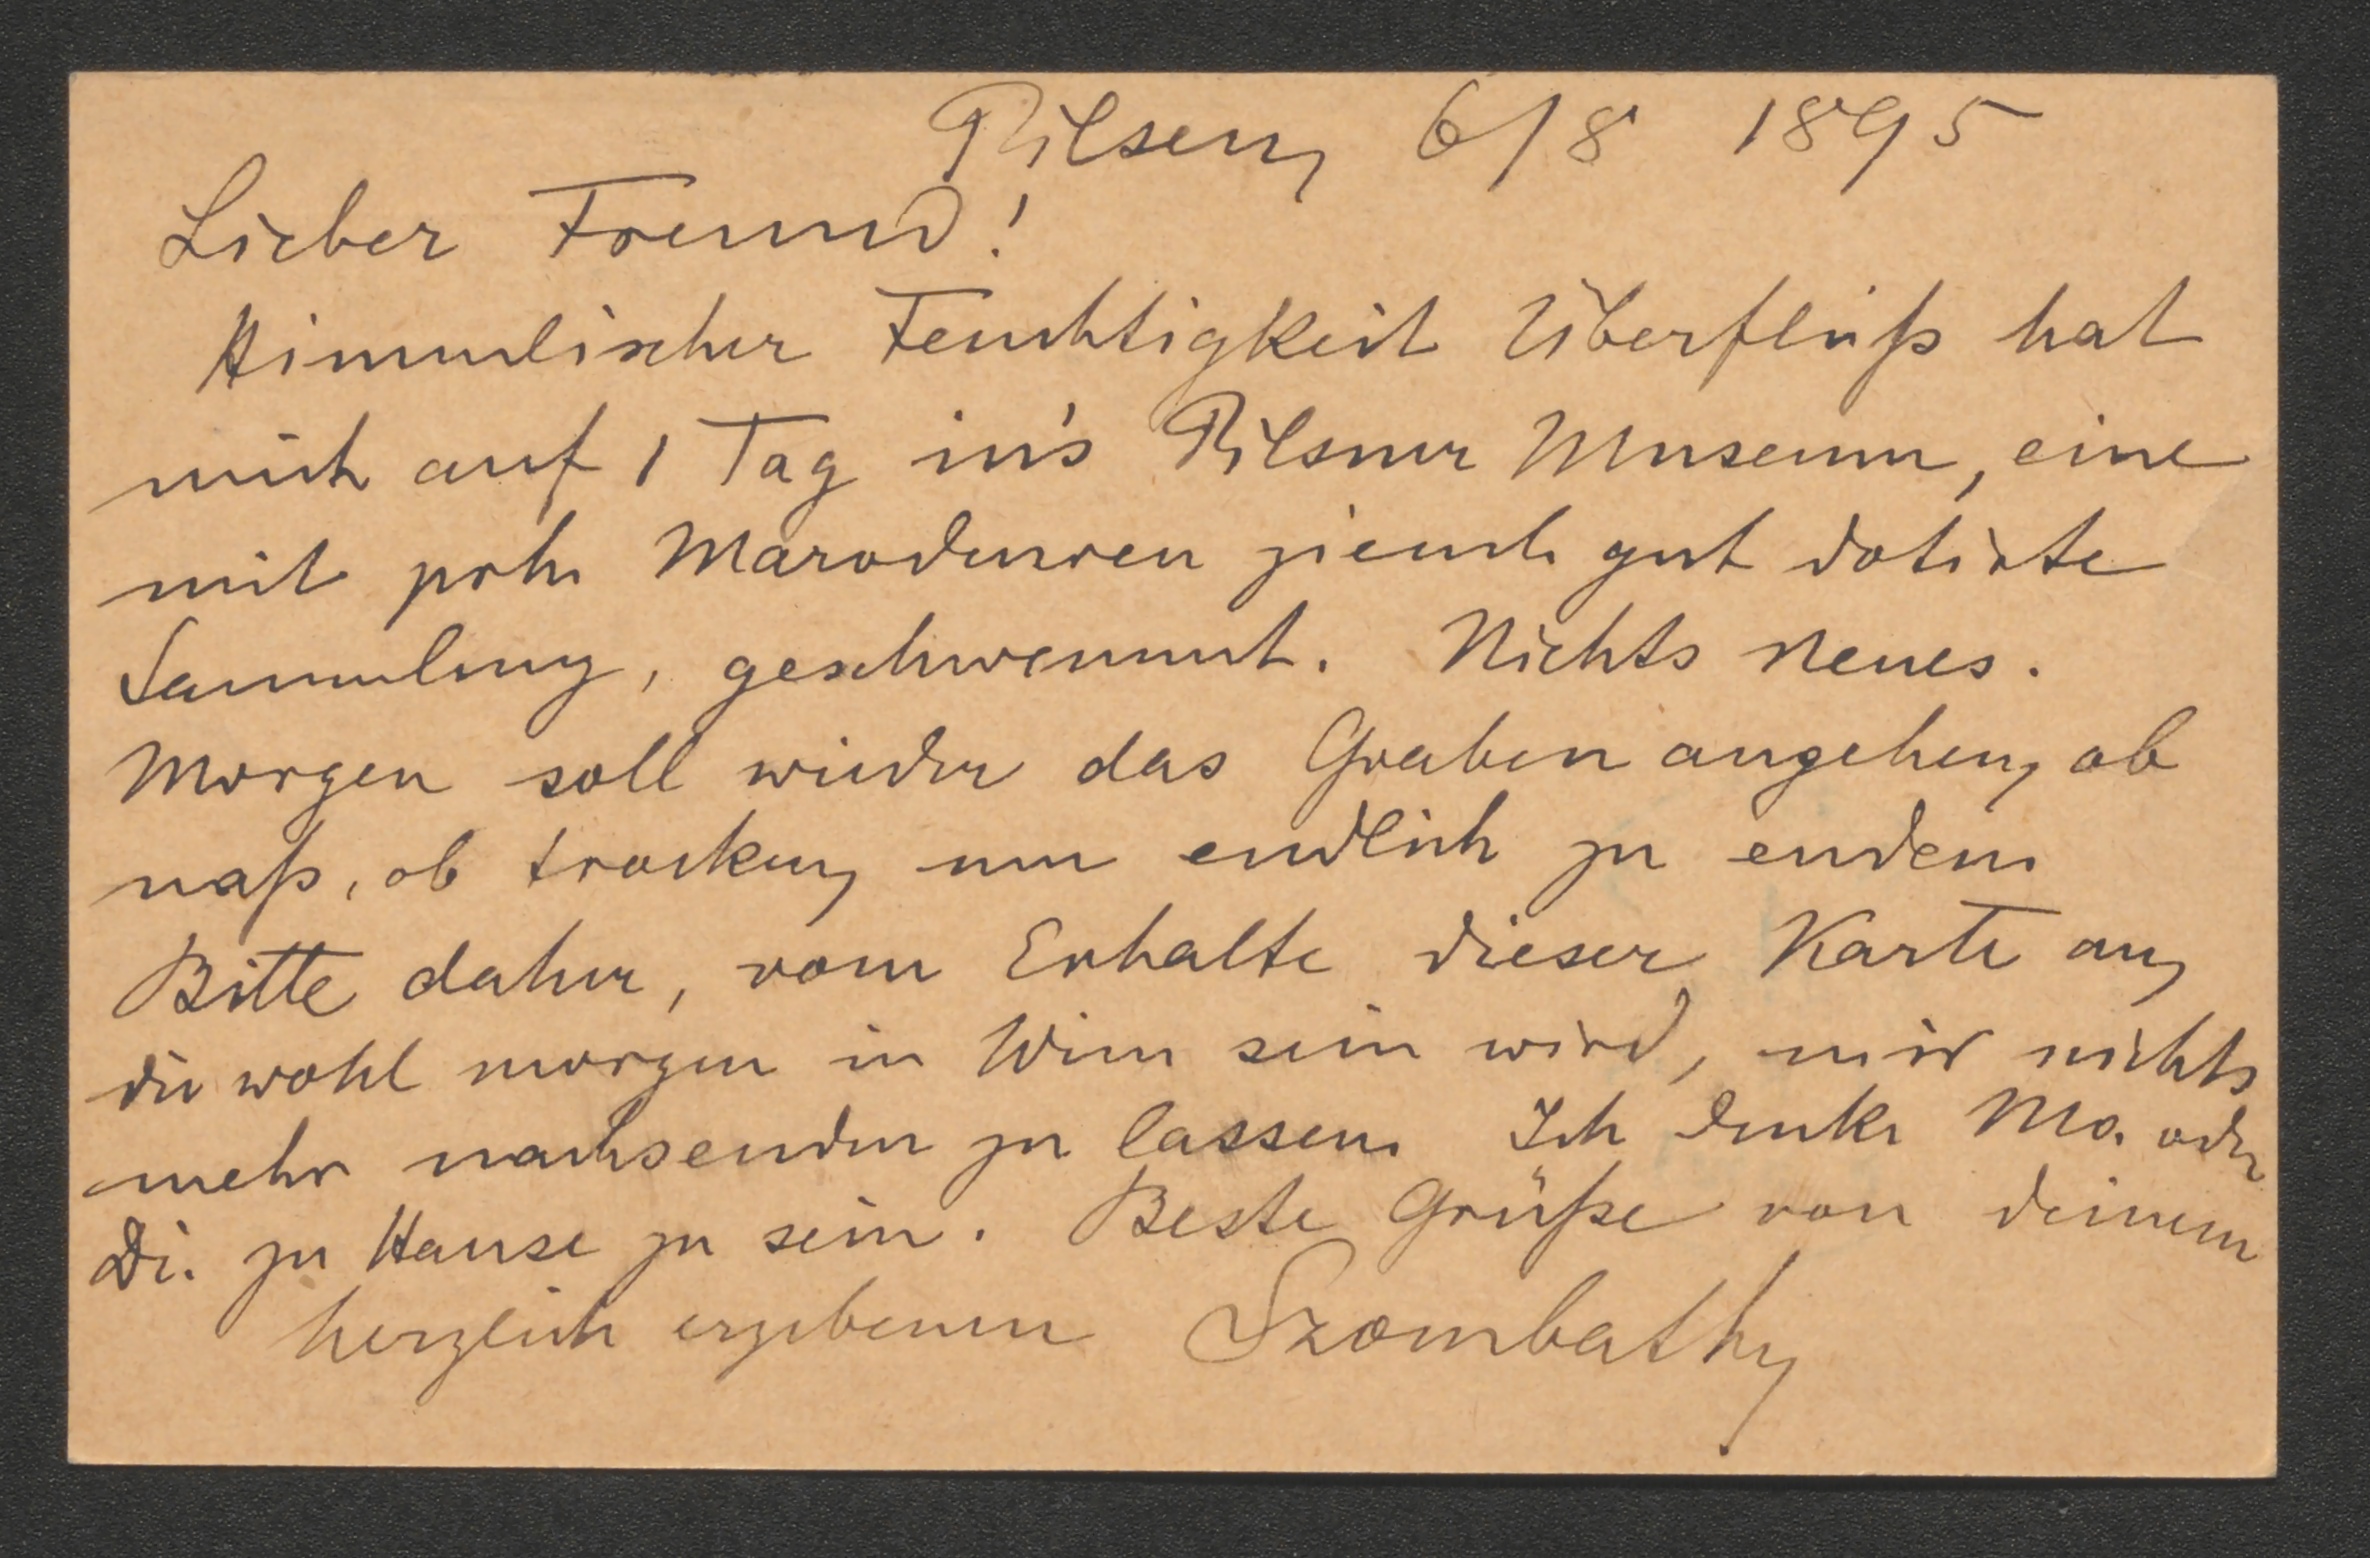 Pilsen, 6/8 1895
Lieber Freund!
Himmlischer Feuchtigkeit Überfluß hat
mich auf 1 Tag in's Pilsner Museum, eine
mit Marodeuren gut dotirte
Sammlung, geschwemmt. Nichts neues.
Morgen soll wieder das Graben angehen, ob
naß, ob trocken, um endlich zu enden.
Bitte daher, vom Erhalte dieser Karte an,
die wohl morgen in Wien sein wird, mir nichts
mehr nachsenden zu lassen. Ich denke Mo. oder
Di. zu Hause zu sein. Beste Grüße von deinem
herzlich ergebenen Szombathy